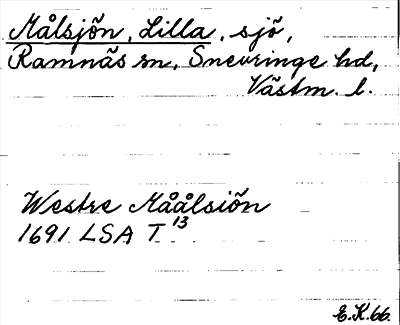 Målsjön, Lilla, sjö,
Ramnäs sn, Snevringe hd,
Västm. l.
Westre Måålsiön
1691 LSA T 13
E.K.66.